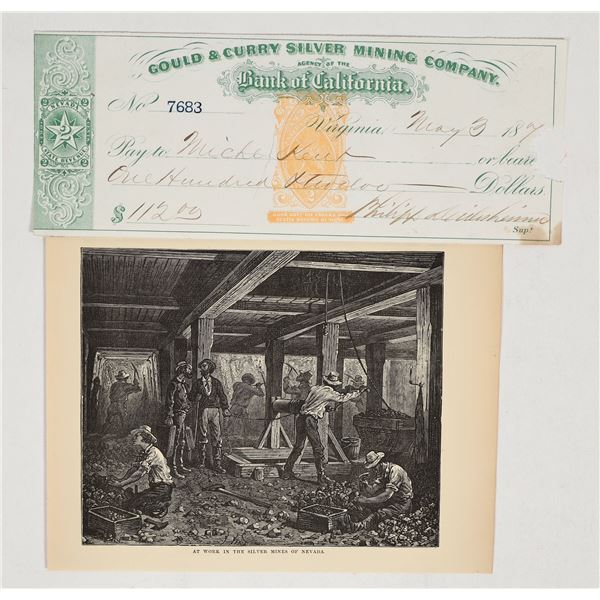 GOULD & CURRY SILVER MINING COMPANY.
AGENCY OF THE
Bank of California.
No 7683
Virginia, May 3 187
Pay to Michl or beare
One Hundred & twelve Dollars.
$ 112.00 Philipp Deidesheimer
Supt
2 2
NEVADA
2
STATE REVENUE
2 2
AT WORK IN THE SILVER MINES OF NEVADA.